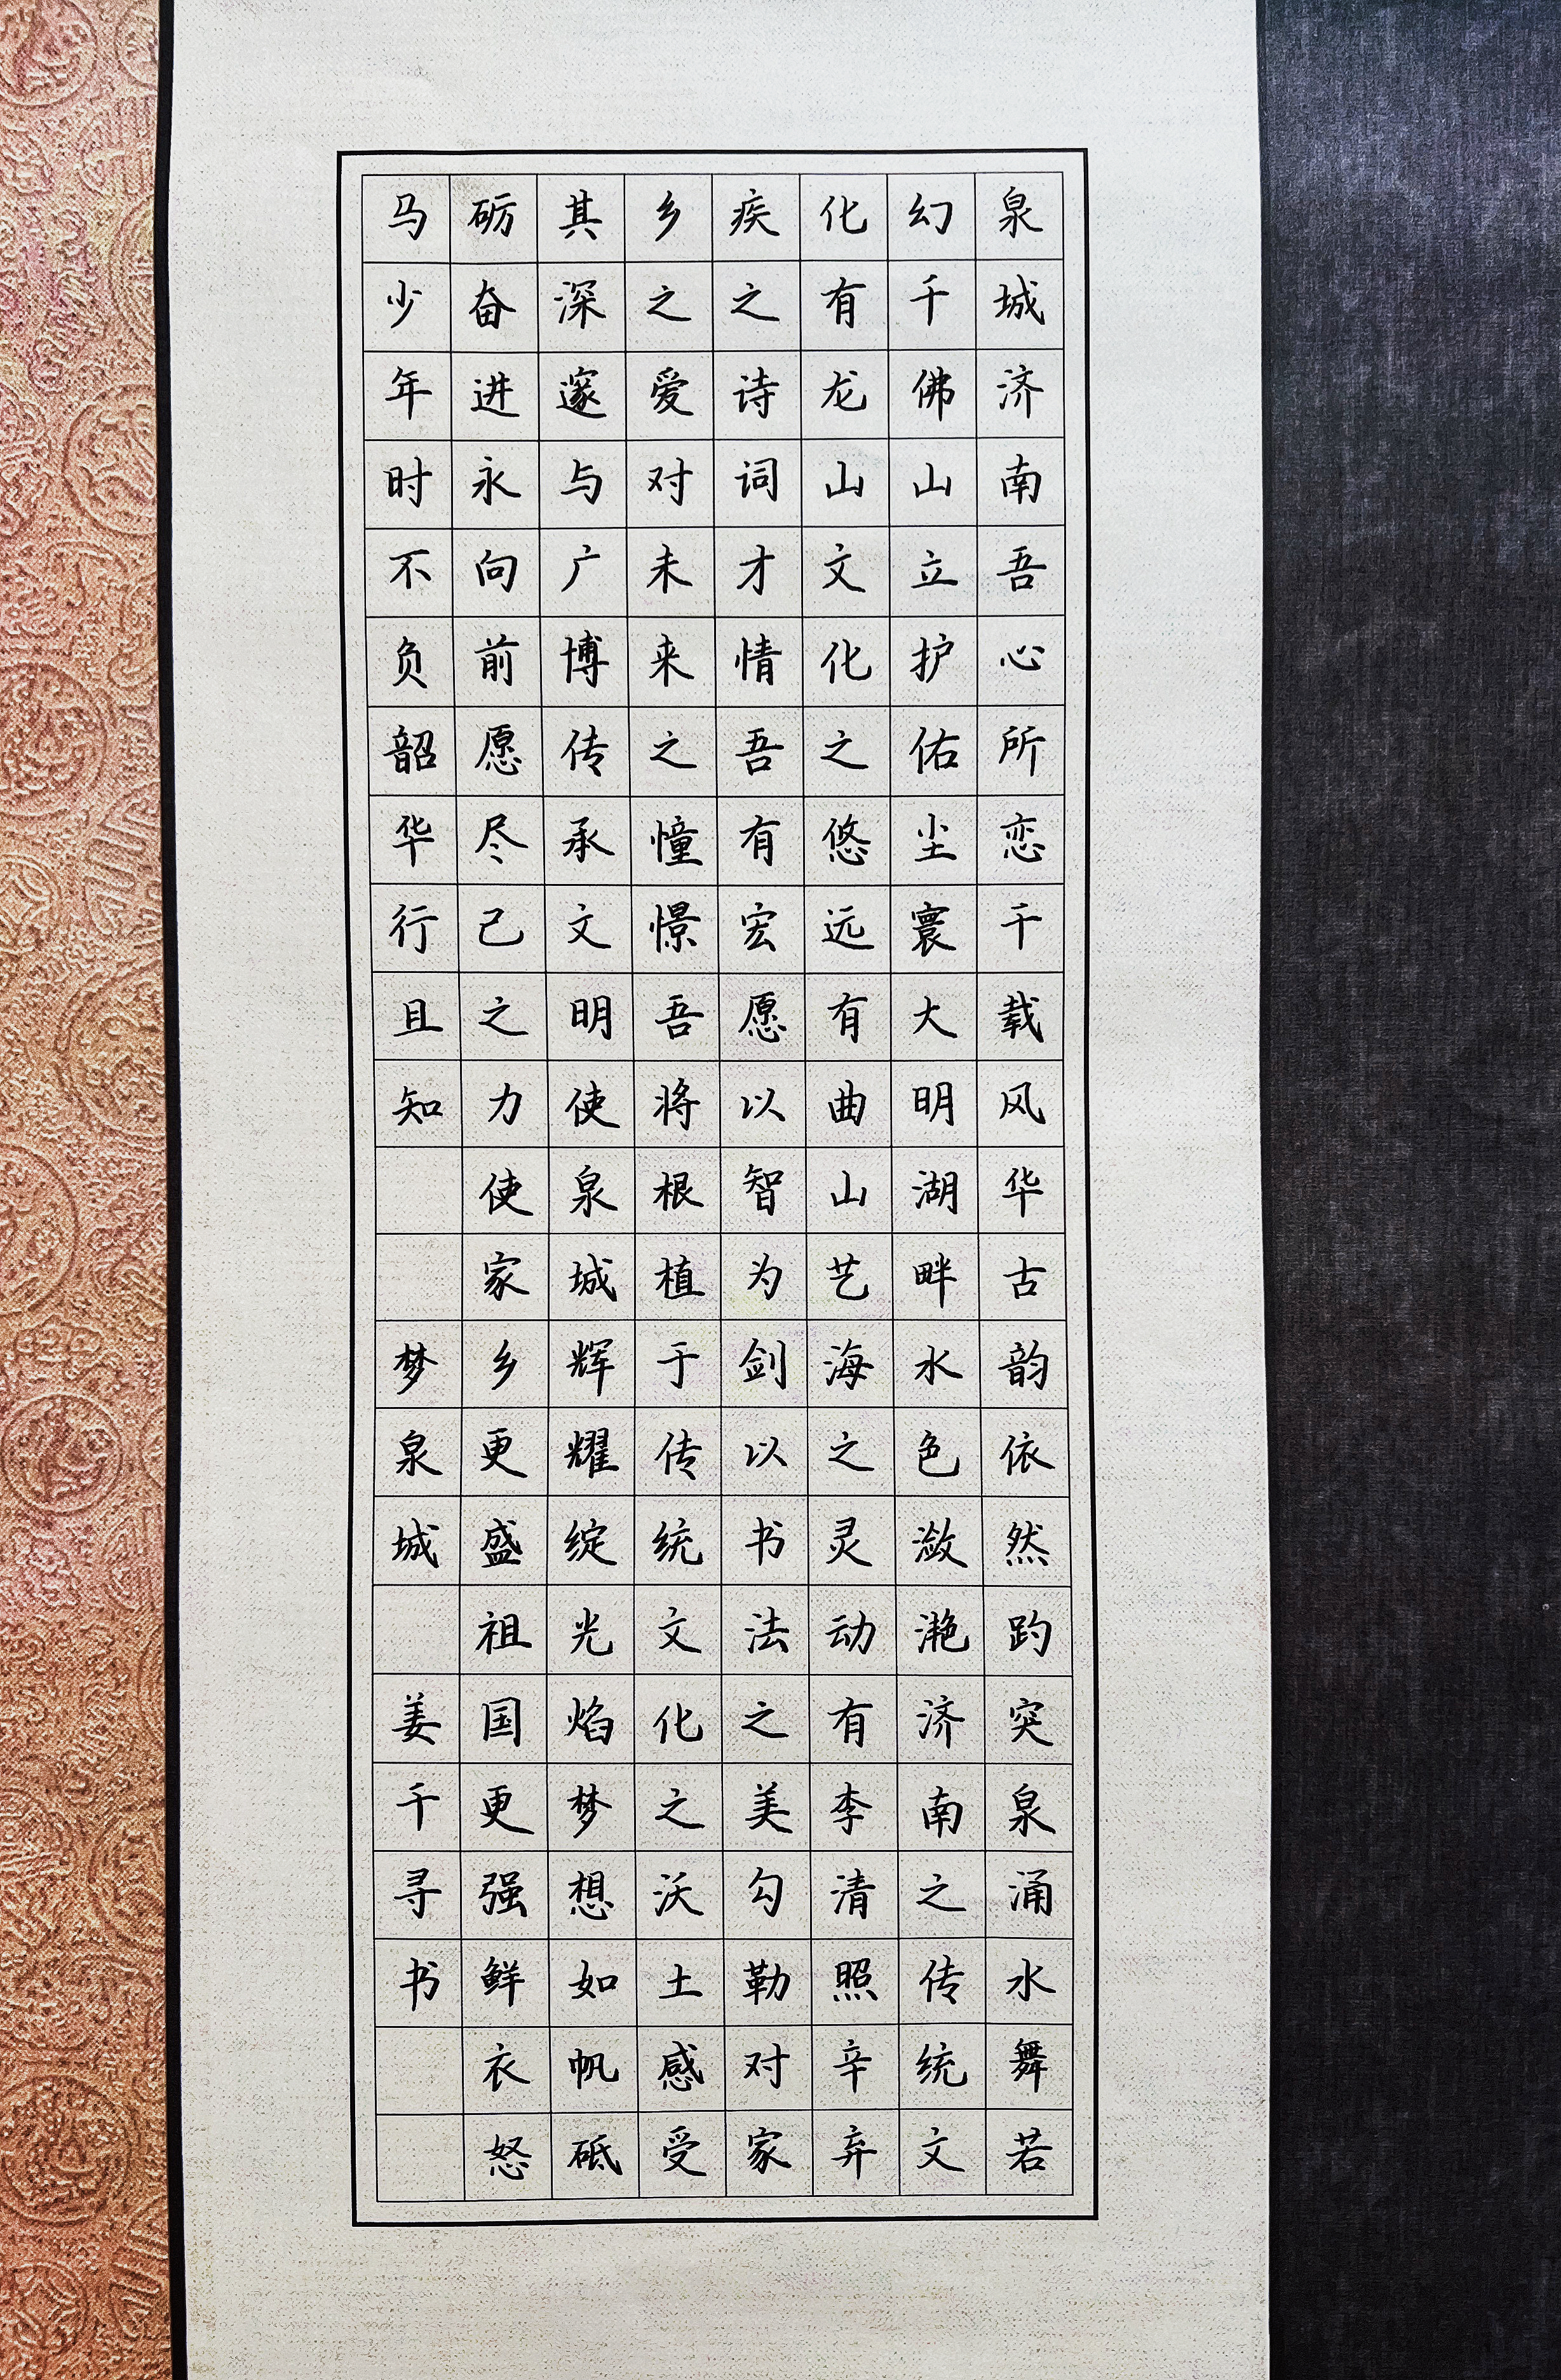 泉城济南吾心所恋千载风华古韵依然趵突泉涌水舞若
幻千佛山立护佑尘寰大明湖畔水色潋滟济南之传统文
化有龙山文化之悠远有曲山艺海之灵动有李清照辛弃
疾之诗词才情吾有宏愿以智为剑以书法之美勾勒对家
乡之爱对未来之憧憬吾将根植于传统文化之沃土感受
其深邃与广博传承文明使泉城辉耀绽光焰梦想如帆砥
砺奋进永向前愿尽己之力使家乡更盛祖国更强鲜衣怒
马少年时不负韶华行且知 梦泉城 姜千寻书